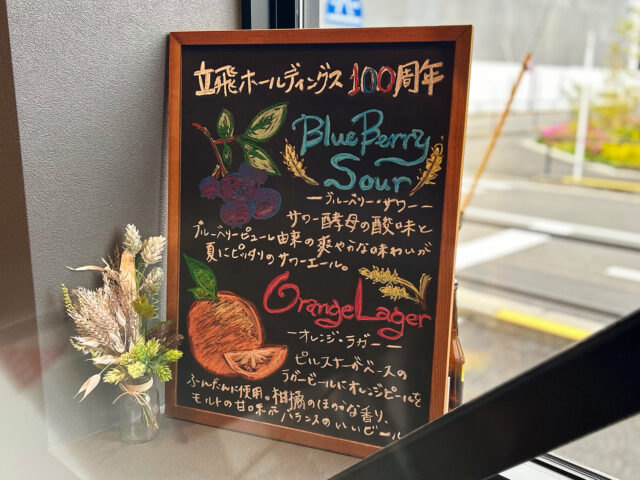 立飛ホールディングス 100周年
BlueBerry
Sour
ーブルーベリー・サワーー
サワー酵母の酸味と
ブルーベリーピューレ由来の爽やかな味わいが
夏にピッタリのサワーエール。
OrangeLager
ーオレンジ・ラガーー
ピルスナーがベースの
ラガービールにオレンジピールを
ふんだんに使用。柑橘のほのかな香り、
モルトの甘味が バランスのいいビール